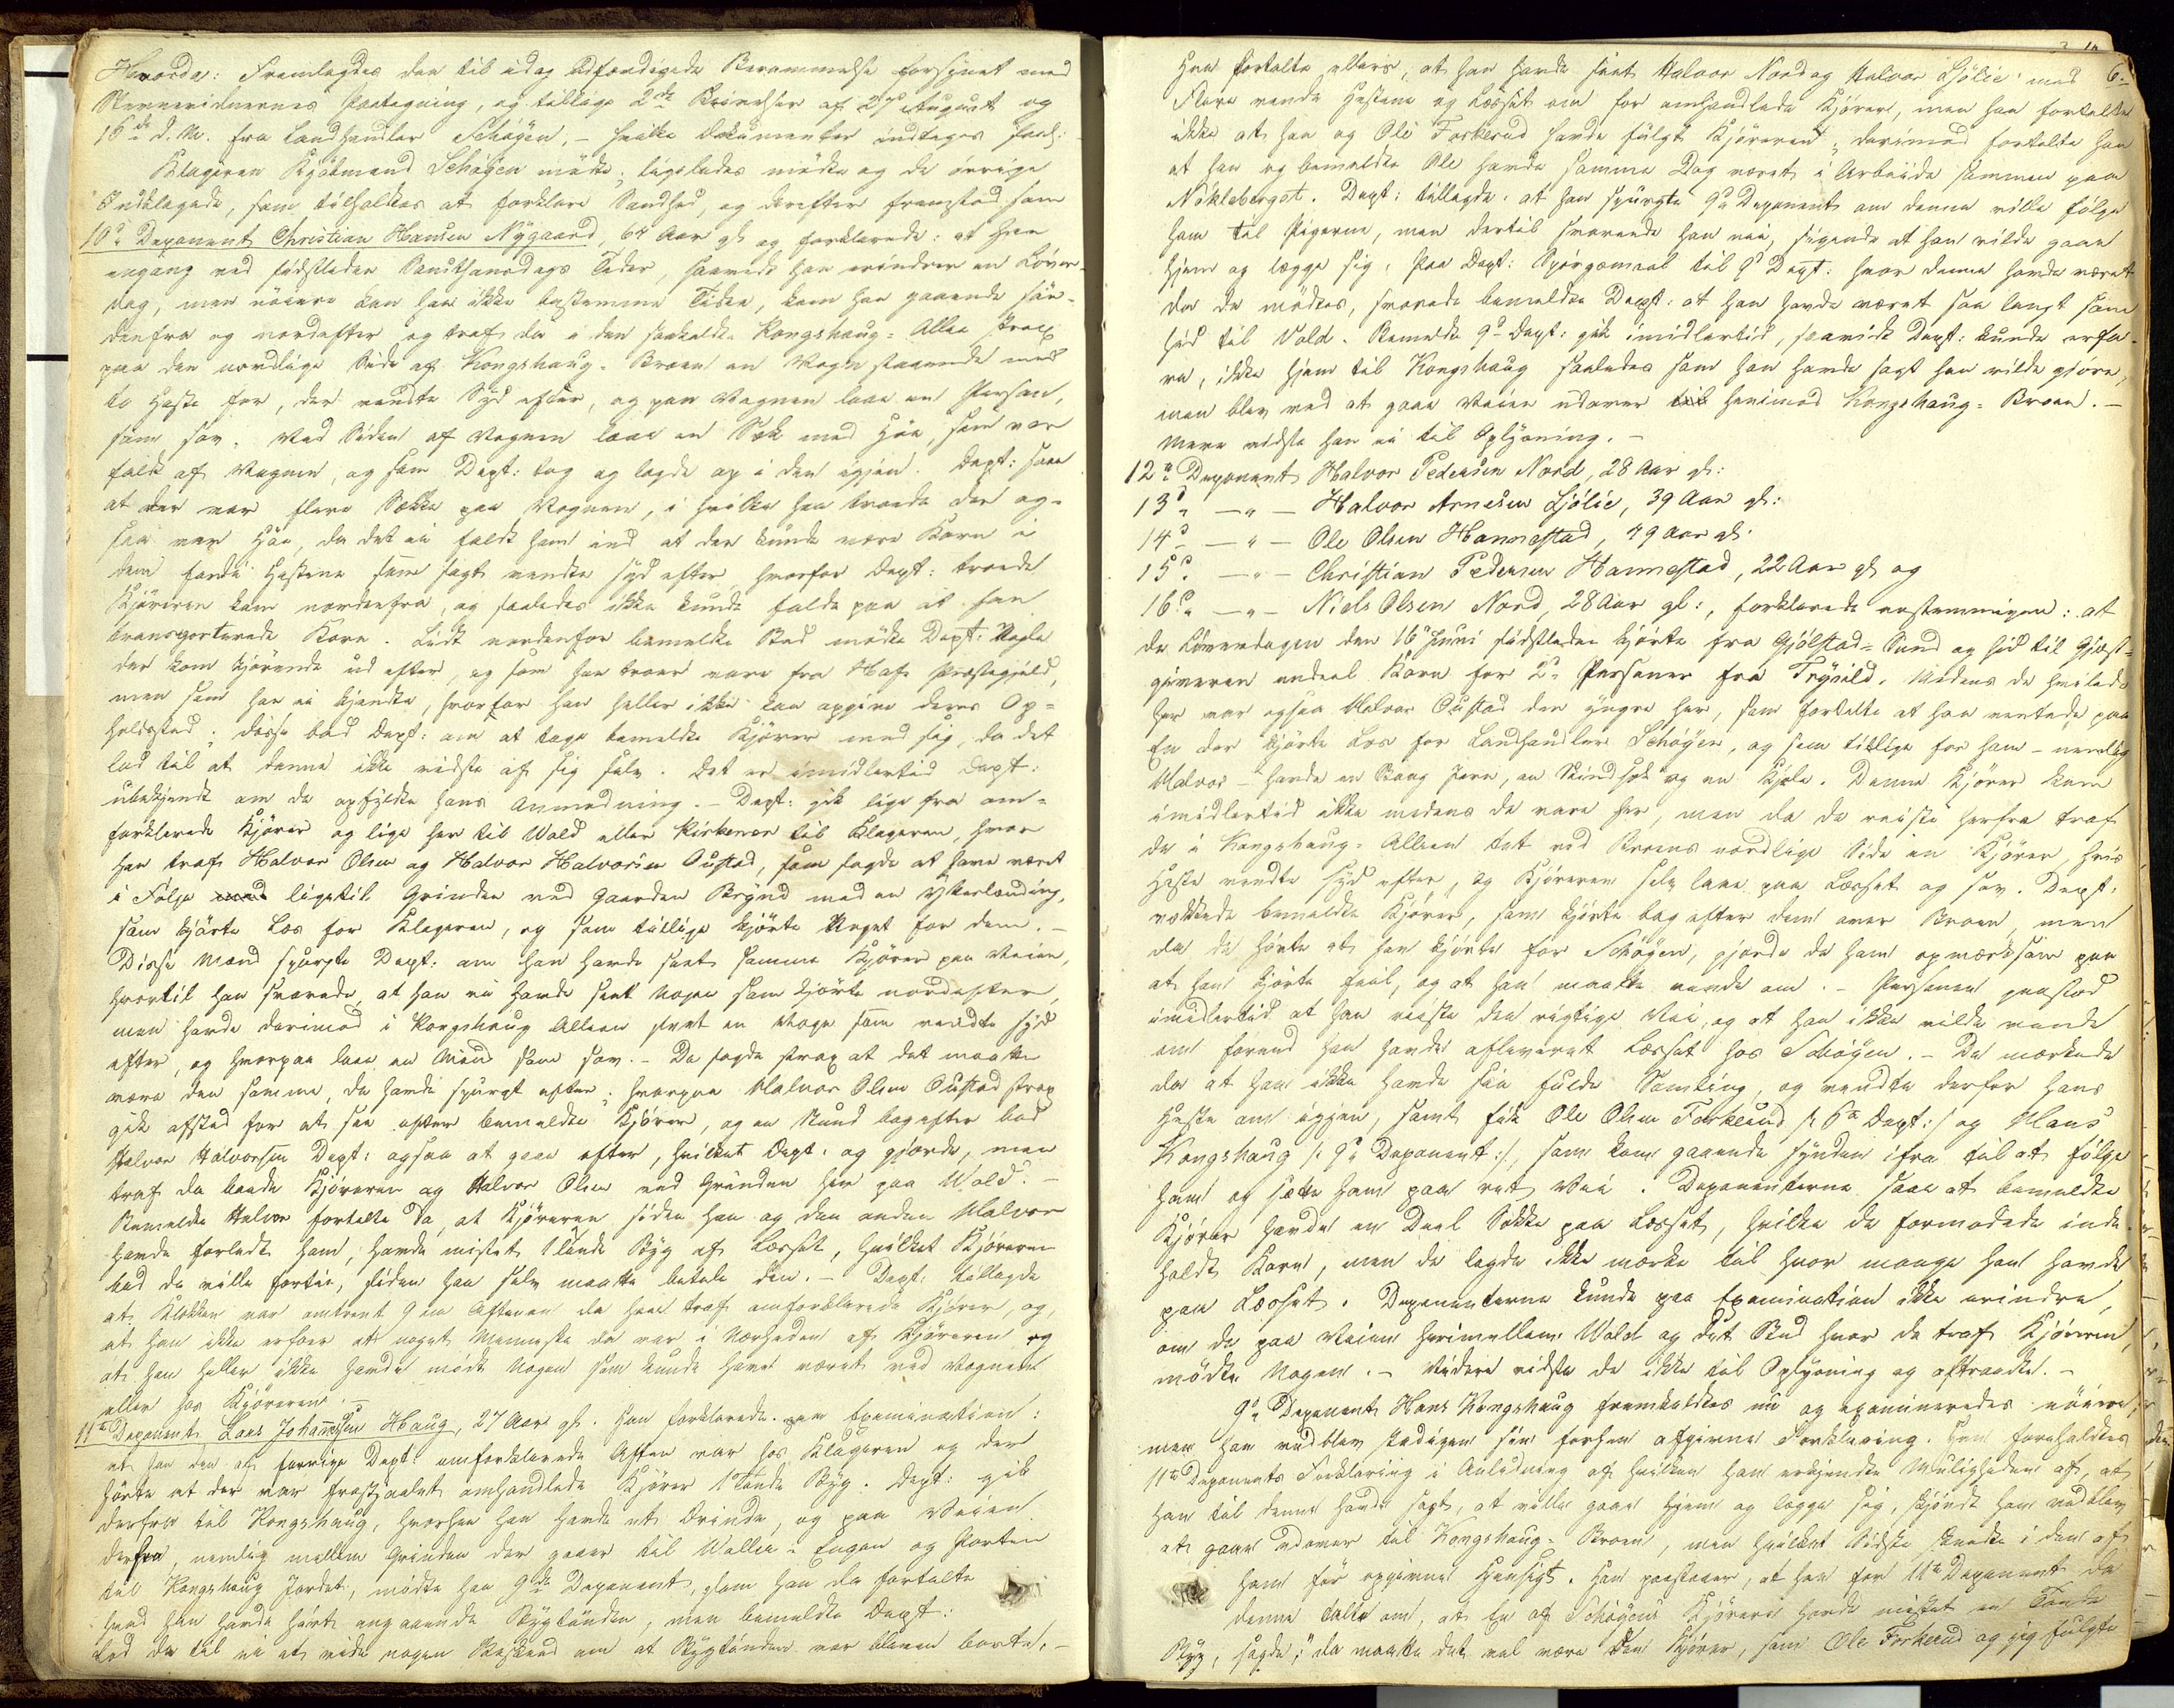 Hvorda: Fremlagdes den til idag udfærdigede Berammelse forsynet med
Stevnevidnernes Paategning, og tillige 2de Skrivelser af August og
16de d. M. fra Landhandler Schøyen, – hvilke Dokumenter indtages
Klageren Kjøbmand Schøyen mødte; ligeledes mødte og de øvrige
Indklagede, som tilholdtes at forklare Sandhed, og derefter fremstod som
10de Deponent Christian Hansen Nygaard, 64 Aar gl og forklarede: at han
engang ved sidstleden Sancthansdags Tider, saavidt han erindrer en Løver-
dag, men nøiere kan han ikke bestemme Tiden, kom han gaaende søn-
denfra og nordefter og traf da i den saakaldte Kongshaug-Allee strax
paa den nordlige Side af Kongshaug-Broen en Vogn staaende med
to Heste for, der vendte Syd efter, og paa Vognen laae en Person,
som sov. Ved Siden af Vognen laae en Sæk med Høe, som var
faldt af Vognen, og som Dept: tog og lagde op i den igjen. Dept: saae
at der var flere Sække paa Vognen, i hvilke han troede der og-
saa var Høe, da det ei faldt ham ind at der kunde være Korn i
dem fordi Hestene som sagt vendte syd efter, hvorfor Dept: troede
Kjøreren kom nordenfra, og saaledes ikke kunde falde paa at han
transporterede Korn. Lidt nordenfor bemeldte Sted mødte Dept: Nogle
der kom kjørende ud efter, og som han troer vare fra Hofs Præstegjeld,
men som han ei kjendte, hvorfor han heller ikke kan opgive deres Op-
holdssted; disse bad Dept: om at tage bemeldte Kjører med sig, da det
lod til at denne ikke vidste af sig selv. Det er imidlertid Dept:
ubekjendt om de opfyldte hans Anmodning. – Dept: gik lige fra om-
forklarede Kjører og lige her til Wold eller Kirkenær til Klageren, hvor
han traf Halvor Olsen og Halvor Halvorsen Oustad, som sagde at have været
i Følge ligetil Grinden ved Gaarden Brynd med en Østerlending,
som kjørte Læs for Klageren, og som tillige kjørte Noget for dem. –
Disse Mænd spurgte Dept: om han havde seet samme Kjører paa Veien,
hvortil han svarede, at han ei havde seet Nogen som kjørte nordefter,
men havde derimod i Kongshaug Alleen seet en Vogn som vendte syd
efter, og hvorpaa laae en Mand som sov. – De sagde strax at det maatte
være den samme, de havde spurgt efter; hvorpaa Halvor Olsen Oustad strax
gik afsted for at see efter bemeldte Kjører, og en Stund bagefter bad
Halvor Halvorsen Dept: ogsaa at gaae efter, hvilket Dept: og gjorde, men
traf da baade Kjøreren og Halvor Olsen ved Grinden her paa Wold. –
Bemeldte Halvor fortalte da, at Kjøreren siden han og den anden Halvor
havde forladt ham, havde mistet 1 Tønde Byg af Læsset, hvilket Kjøreren
bad de ville fortie, siden han selv maatte betale den. – Dept: tillagde
at Klokken var omtrent 9 om Aftenen da han traf omforklarede Kjører, og
at han ikke erfoer at noget Menneske da var i Nærheden af Kjøreren og
at han heller ikke havde mødt Nogen som kunde have været ved Vognen
eller hos Kjøreren. –
11te Deponent Lars Johannesen Haug, 27 Aar gl. Han forklarede paa Examination:
at han den af forrige Dept: omforklarede Aften var hos Klageren og der
hørte at der var frastjaalet omhandlede Kjører 1 Tønde Byg. Dept: gik
derfra til Kongshaug, hvorhen han havde et Ærinde, og paa Veien
derfra, nemlig mellem Grinden der gaaer til Wolle-Engen og Porten
til Kongshaug Jordet, mødte han 9de Deponent, som han da fortalte
hvad han havde hørt angaaende Bygtønden, men bemeldte Dept:
lod da til ei at vide nogen Beskeed om at Bygtønden var bleven borte. –
6.
Han fortalte ellers, at han havde seet Halvor Nord og Halvor Ljølie med
Flere vende Hestene og Læsset om for omhandlede Kjører, men han fortalte
ikke at han og Ole Forkerud havde fulgt Kjøreren; derimod fortalte han
at han og bemeldte Ole havde samme Dag været i Arbeide sammen paa
Nøkleberget. Dept: tillagde: at han spurgte 9de Deponent om denne ville følge
ham til Pigerne, men dertil svarede han nei, sigende at han vilde gaae
hjem og lægge sig. Paa Dept: Spørgsmaal til 9de Dept: hvor denne havde været
da de mødtes, svarede bemeldte Dept: at han havde været saa langt som
hid til Vold. Bemeldte 9de Dept: gik imidlertid, saavidt Dept: kunde erfa-
re, ikke hjem til Kongshaug saaledes som han havde sagt han vilde gjøre,
men blev ved at gaae Veien udover til henimod Kongshaug-Broen. –
Mere vidste han ei til Oplysning. –
12te Deponent Halvor Pedersen Nord, 28 Aar gl:
13de – " – Halvor Arnesen Ljølie, 39 Aar gl:
14de – " – Ole Olsen Hannestad, 49 Aar gl:
15de – " – Christian Pedersen Hannestad, 22 Aar gl og
16de – " – Niels Olsen Nord, 28 Aar gl:, forklarede eenstemmigen: at
de Løverdagen den 16de Juni sidstleden kjørte fra Gjølstad-Sund og hid til Gjæst-
giveren endeel Korn for 2de Personer fra Trysild. Medens de hvilede
her var ogsaa Halvor Oustad den yngre her, som fortalte at han ventede paa
En der kjørte Læs for Landhandler Schøyen, og som tillige for ham – nemlig
Halvor – havde en Stang Jern, en Skindsæk og en Kjole. Denne Kjører kom
imidlertid ikke medens de vare her, men da de reiste herfra traf
de i Kongshaug-Alleen tæt ved Broens nordlige Side en Kjører, hvis
Heste vendte syd efter, og Kjøreren selv laae paa Læsset og sov. Dept:
vækkede bemeldte Kjører, som kjørte bag efter dem over Broen, men
da de hørte at han kjørte for Schøyen, gjorde de ham opmærksom paa
at han kjørte feil, og at han maatte vende om. – Personen paastod
imidlertid at han reiste den rigtige Vei, og at han ikke vilde vende
om førend han havde afleveret Læsset hos Schøyen. – De mærkede
da at han ikke havde sin fulde Samling, og vendte derfor hans
Heste om igjen, samt fik Ole Olsen Forkerud /: 6te Dept: / og Hans
Kongshaug /: 9de Deponent :/, som kom gaaende synden ifra til at følge
ham og sætte ham paa ret Vei. Deponenterne saae at bemeldte
Kjører havde en Deel Sække paa Læsset, hvilke de formodede inde-
holdt Korn, men de lagde ikke mærke til hvor mange han havde
paa Læsset. Deponenterne kunde paa Examination ikke erindre,
om de paa Veien herimellem Wold og det Sted hvor de traf Kjøreren,
mødte Nogen. – Videre vidste de ikke til Oplysning og aftraadte. –
9de Deponent Hans Kongshaug fremkaldtes nu og examineredes nøiere,
men han vedblev stadigen sin forhen afgivne Forklaring. Han foreholdtes
11te Deponents Forklaring i Anledning af hvilken han erkjendte Muligheden af, at
han til denne havde sagt, at ville gaae hjem og lægge sig, skjøndt han vedblev
at gaae udover til Kongshaug-Broen, men hvilket Sidste skeede i den af
ham før opgivne Hensigt. Han paastaaer, at han for 11te Deponent da
denne talte om, at En af Schøyens Kjørere havde mistet en Tønde
Byg, sagde: "da maatte det vel være den Kjører, som Ole Forkerud og jeg fulgte